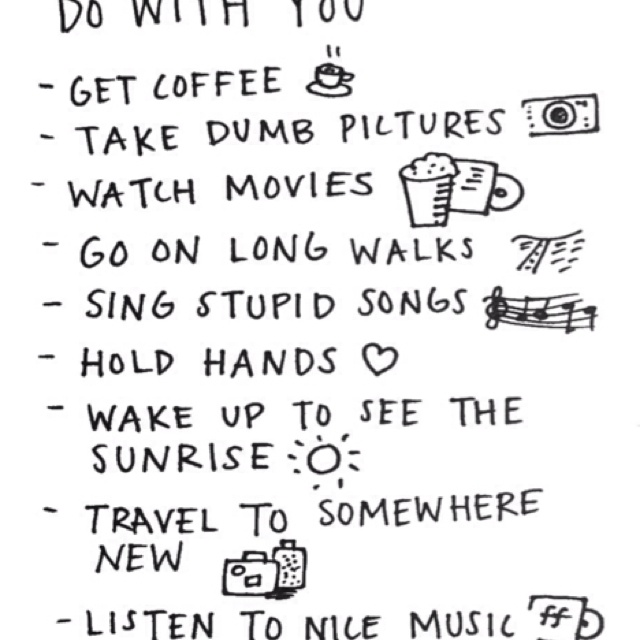 DO WITH YOU
- GET COFFEE
- TAKE DUMB PICTURES
- WATCH MOVIES
- GO ON LONG WALKS
- SING STUPID SONGS
- HOLD HANDS ♡
- WAKE UP TO SEE THE
SUNRISE
- TRAVEL TO SOMEWHERE
NEW
- LISTEN TO NICE MUSIC
ff